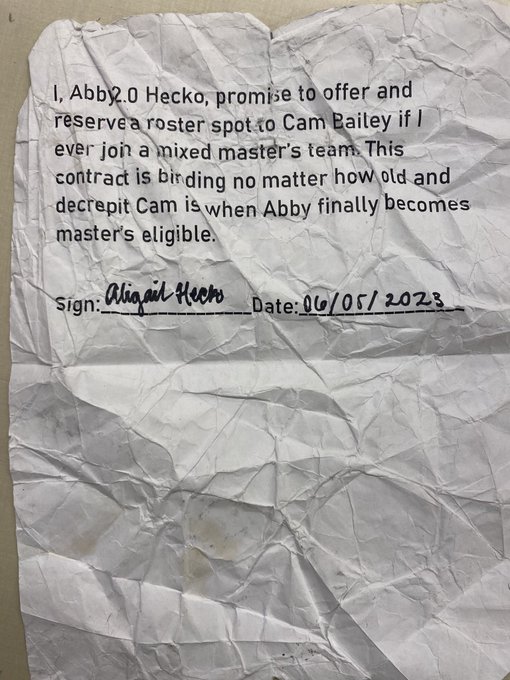 I, Abby2.0 Hecko, promise to offer and
reserve a roster spot to Cam Bailey if I
ever join a mixed master's team. This
contract is binding no matter how old and
decrepit Cam is when Abby finally becomes
master's eligible.
Sign: Abigail Hecko Date: 06/05/2023